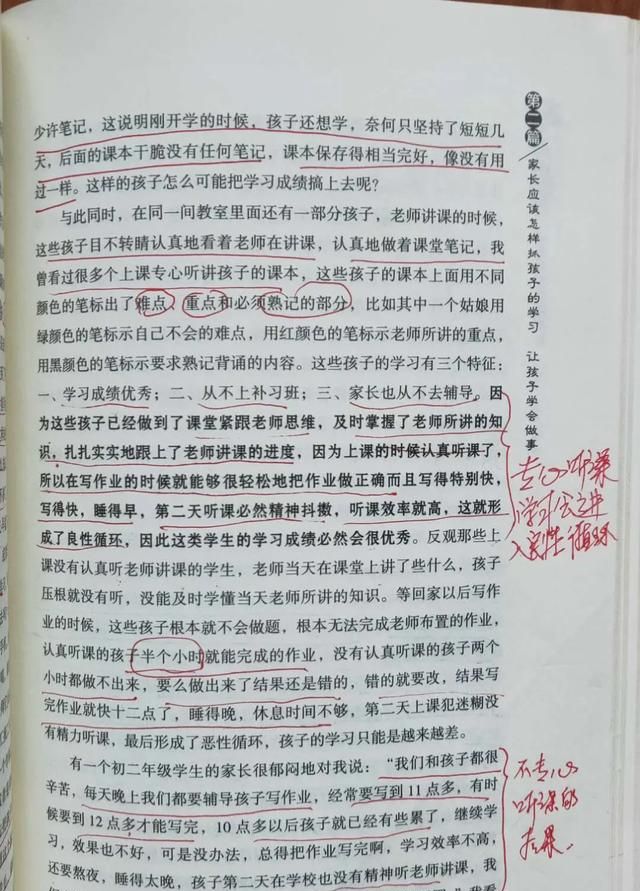 少许笔记，这说明刚开学的时候，孩子还想学，奈何只坚持了短短几
天，后面的课本干脆没有任何笔记，课本保存得相当完好，像没有用
过一样。这样的孩子怎么可能把学习成绩搞上去呢？
与此同时，在同一间教室里面还有一部分孩子，老师讲课的时候，
这些孩子目不转睛认真地看着老师在讲课，认真地做着课堂笔记，我
曾看过很多个上课专心听讲孩子的课本，这些孩子的课本上面用不同
颜色的笔标出了难点、重点和必须熟记的部分，比如其中一个姑娘用
绿颜色的笔标示自己不会的难点，用红颜色的笔标示老师所讲的重点，
用黑颜色的笔标示要求熟记背诵的内容。这些孩子的学习有三个特征：
一、学习成绩优秀；二、从不上补习班；三、家长也从不去辅导。因
为这些孩子已经做到了课堂紧跟老师思维，及时掌握了老师所讲的知
识，扎扎实实地跟上了老师讲课的进度，因为上课的时候认真听课了，
所以在写作业的时候就能够很轻松地把作业做正确而且写得特别快，
写得快，睡得早，第二天听课必然精神抖擞，听课效率就高，这就形
成了良性循环，因此这类学生的学习成绩必然会很优秀。反观那些上
课没有认真听老师讲课的学生，老师当天在课堂上讲了些什么，孩子
压根就没有听，没能及时学懂当天老师所讲的知识。等回家以后写作
业的时候，这些孩子根本就不会做题，根本无法完成老师布置的作业，
认真听课的孩子半个小时就能完成的作业，没有认真听课的孩子两个
小时都做不出来，要么做出来了结果还是错的，错的就要改，结果写
完作业就快十二点了，睡得晚，休息时间不够，第二天上课犯迷糊没
有精力听课，最后形成了恶性循环，孩子的学习只能是越来越差。
有一个初二年级学生的家长很郁闷地对我说：“我们和孩子都很
辛苦，每天晚上我们都要辅导孩子写作业，经常要写到11点多，有时
候要到12点多才能写完，10点多以后孩子就已经有些累了，继续学
习，效果也不好，可是没办法，总得把作业写完啊，学习效率不高，
还要熬夜，睡得太晚，孩子第二天在学校也没有精神听老师讲课，我
第二篇
家长应该怎样抓孩子的学习
让孩子学会做事
专心听课
学习会进
入良性循环
不专心
听课的
后果